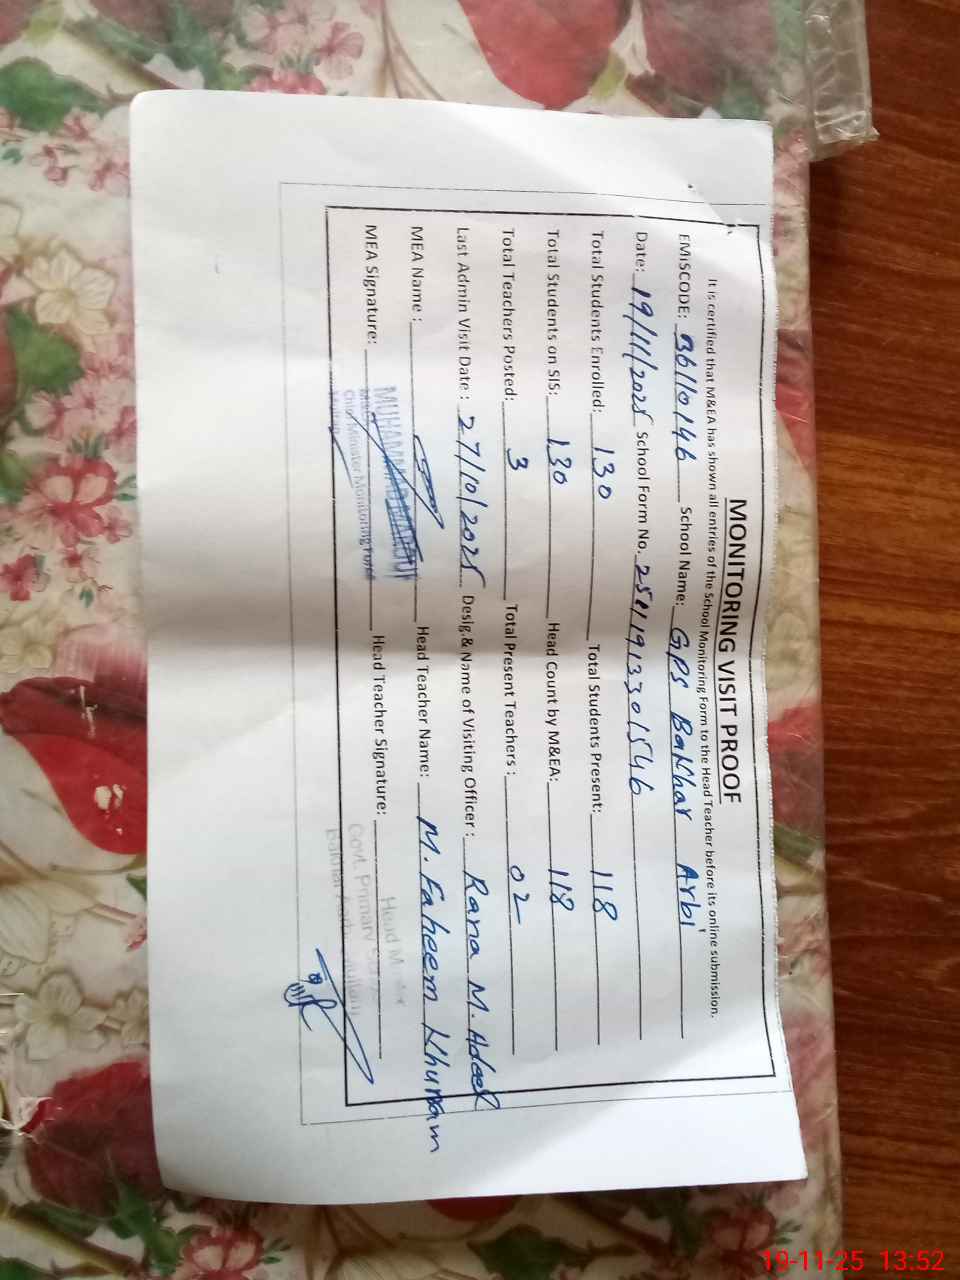 MONITORING VISIT PROOF
It is certified that M&EA has shown all entries of the School Monitoring Form to the Head Teacher before its online submission.
EMISCODE: 36110146 School Name: GPS Bakhar Arbi
Date: 19/11/2025 School Form No. 25111913301546
Total Students Enrolled: 130 Total Students Present: 118
Total Students on SIS: 130 Head Count by M&EA: 118
Total Teachers Posted: 3 Total Present Teachers : 02
Last Admin Visit Date : 27/10/2025 Desig.& Name of Visiting Officer : Rana M. Adeel
MEA Name : Head Teacher Name: M. Faheem Khuram
MUHAMMAD
MEA Signature: Head Teacher Signature:
Chief Minister Monitoring Force
Govt. Primary
19-11-25 13:52